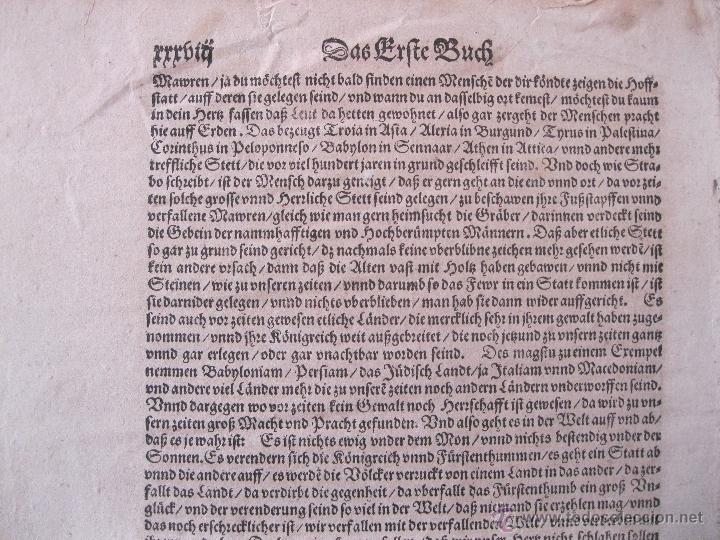 xxxviij Das Erste Buch
Mawren/ ja du möchtest nicht bald finden einen Menschẽ der dir köndte zeigen die Hoff-
statt/ auff deren sie gelegen seind/ vnd wann du an dasselbig ort kemest/ möchtest du kaum
in dein Hertz fassen daß Leut da hetten gewohnet/ also gar zergeht der Menschen pracht
hie auff Erden. Das bezeugt Troia in Asia/ Alexia in Burgund/ Tyrus in Palestina/
Corinthus in Peloponneso/ Babylon in Sennaar/ Athen in Attica/ vnnd andere mehr
treffliche Stett/ die vor viel hundert jaren in grund geschleifft seind. Vnd doch wie Stra-
bo schreibt/ ist der Mensch darzu geneigt/ daß er gern geht an die end vnnd ort/ da vor zei-
ten solche grosse vnnd Herrliche Stett seind gelegen/ zu beschawen jhre Fußstapffen vnnd
verfallene Mawren/ gleich wie man gern heimsucht die Gräber/ darinnen verdeckt seind
die Gebein der nammhafftigen vnd Hochberümpten Männern. Daß aber etliche Stett
so gar zu grund seind gericht/ dz nachmals keine vberblibne zeichen mehr gesehen werdẽ/ ist
kein andere vrsach/ dann daß die Alten vast mit Holtz haben gebawen/ vnnd nicht mit
Steinen/ wie zu vnseren zeiten/ vnnd darumb so das Fewr in ein Statt kommen ist/ ist
sie darnider gelegen/ vnnd nichts vberblieben/ man hab sie dann wider auffgericht. Es
seind auch vor zeiten gewesen etliche Länder/ die mercklich sehr in jhrem gewalt haben zuge-
nommen/ vnnd jhre Königreich weit außgebreitet/ die noch jetzund zu vnsern zeiten gantz
vnnd gar erlegen/ oder gar vnachtbar worden seind. Des magstu zu einem Exempel
nemmen Babyloniam/ Persiam/ das Jüdisch Landt/ ja Italiam vnnd Macedoniam/
vnd andere viel Länder mehr die zu vnserẽ zeiten noch andern Ländern vnderworffen seind.
Vnnd dargegen wo vor zeiten kein Gewalt noch Herrschafft ist gewesen/ da wird zu vn-
sern zeiten groß Macht vnd Pracht gefunden. Vnd also geht es in der Welt auff vnd ab/
daß es je wahr ist: Es ist nichts ewig vnder dem Mon/ vnnd nichts bestendig vnder der
Sonnen. Es verendern sich die Königreich vnnd Fürstenthummen/ es geht ein Statt ab
vnnd die andere auff/ es werdẽ die Völcker verruckt von einem Landt in das ander/ da zer-
fallt das Landt/ da verdirbt die gegenheit/ da vberfallt das Fürstenthumb ein groß Vn-
glück/ vnd der verenderung seind so viel in der Welt/ daß niemand sie erzehlen mag/ vnnd
das noch erschrecklicher ist/ wir verfallen mit der verfallender Welt/
todocoleccion.net